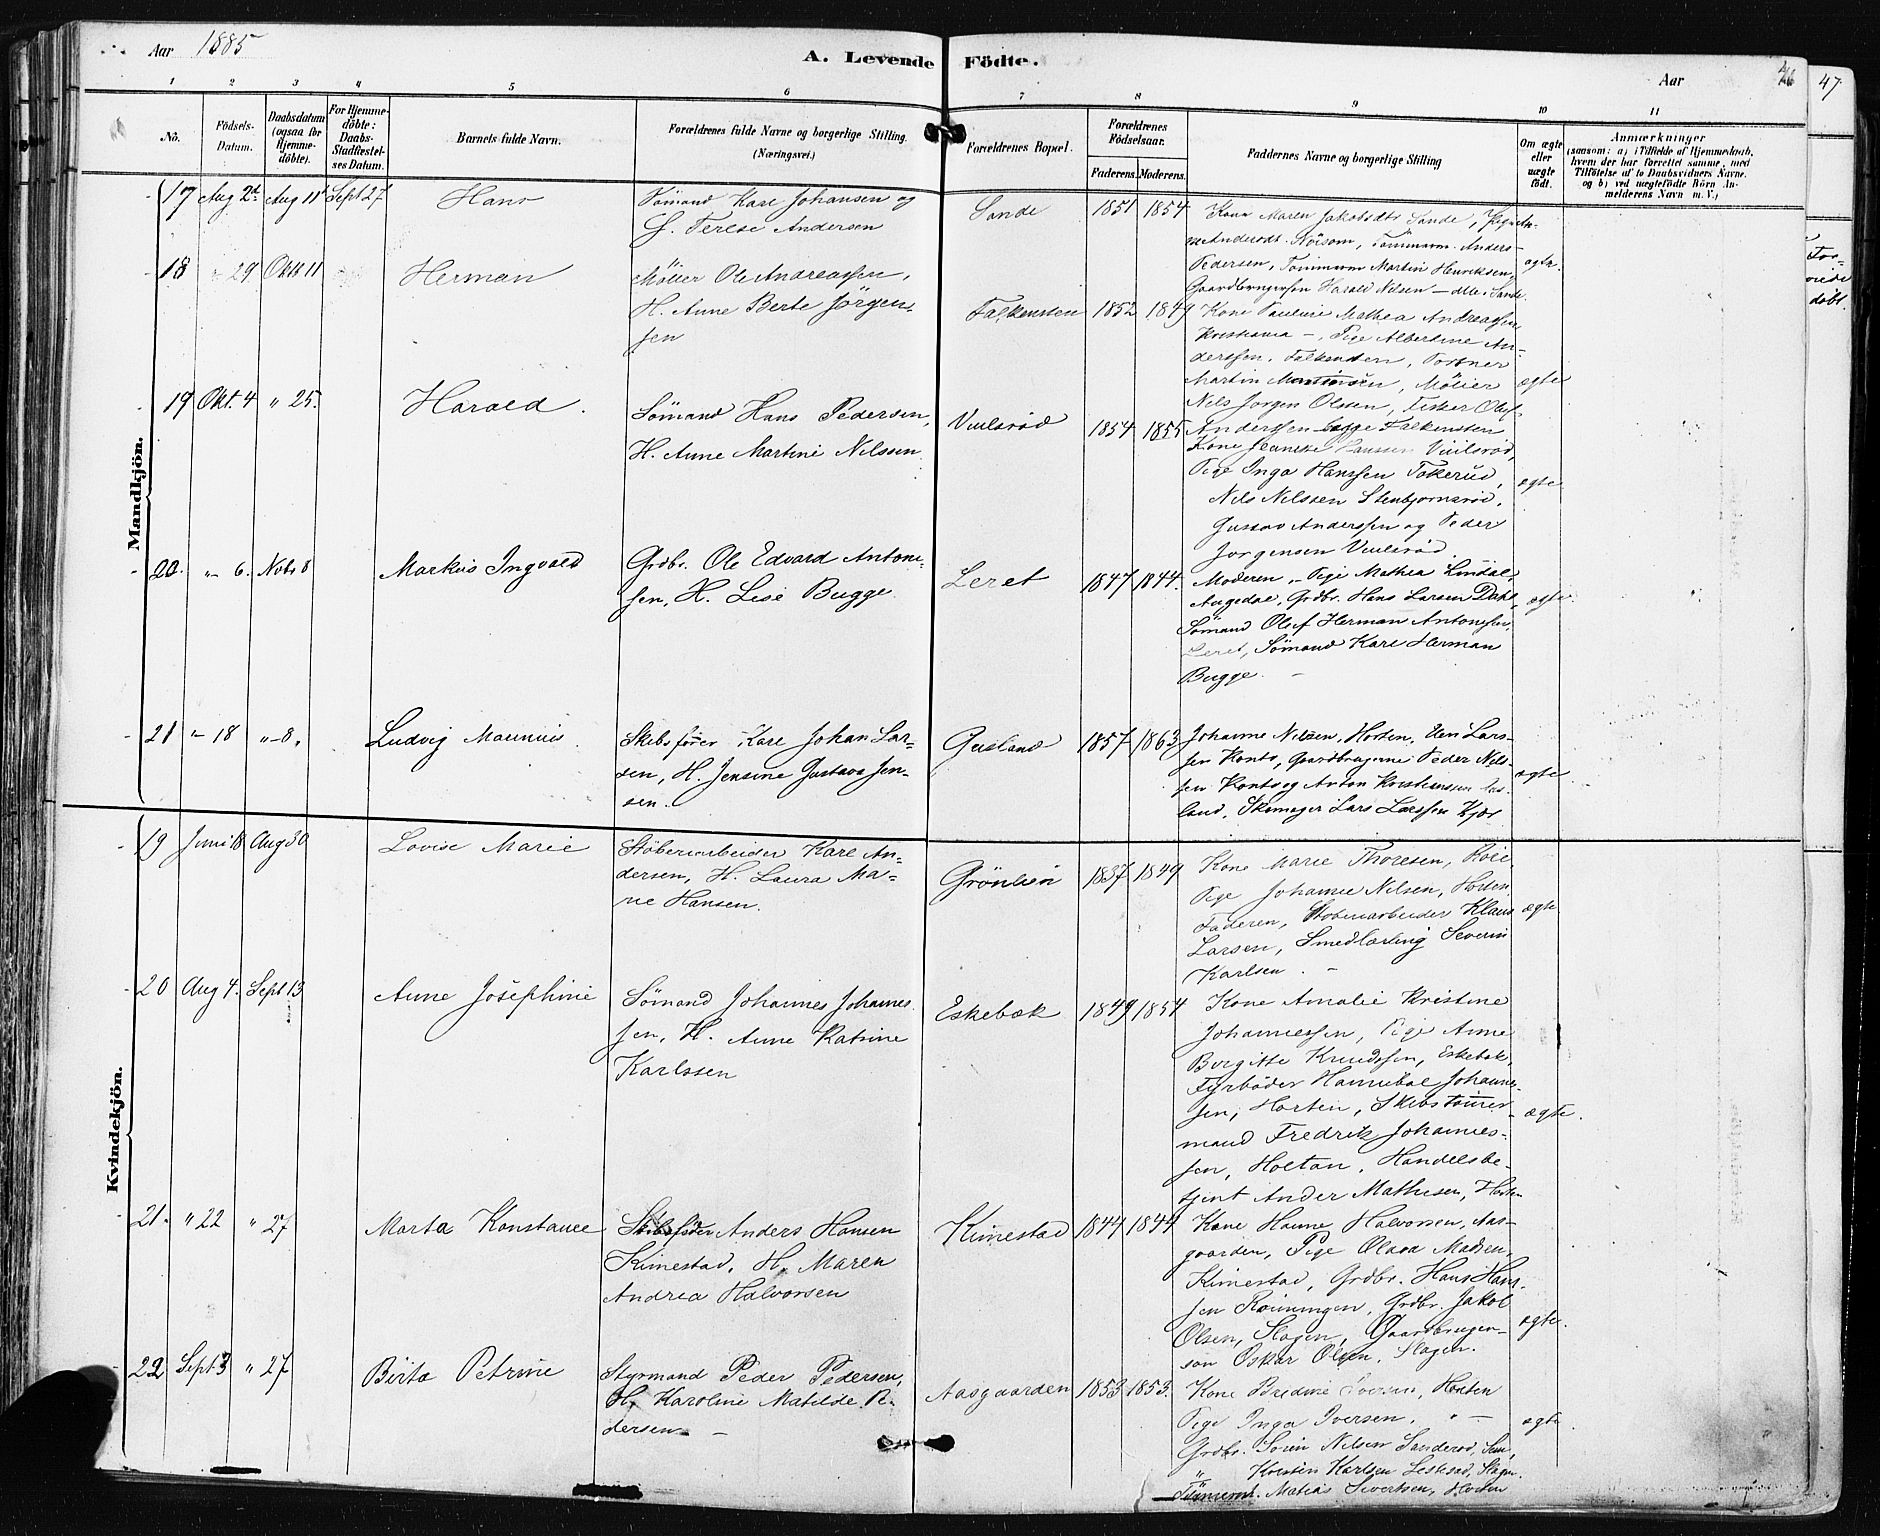 Aar 1885
A. Levende Födte.
Aar
46
47
1 2 3 4 5 6 7 8 9 10 11
No.
Födsels-Datum.
Daabsdatum (ogsaa for Hjemmedöbte).
For Hjemmedöbte: Daabs-Stadfæstelses Datum.
Barnets fulde Navn.
Forældrenes fulde Navne og borgerlige Stilling. (Næringsvei.)
Forældrenes Bopæl.
Forældrenes Födselsaar.
Faderens. Moderens.
Faddernes Navne og borgerlige Stilling
Om ægte eller uægte födt.
Anmærkninger
(saasom: a) i Tilfælde af Hjemmedaab,
hvem der har forrettet samme, med
Tilföielse af to Daabsvidners Navne.
og b) ved uægtefödte Börn Anmelderens Navn m. V.)
Mandkjön.
17 Aug 2d Aug 11t Sept 27 Hans
Sömand Karl Johansen og
H. Terese Andersen
Sande 1851 1854
Kone Maren Jakobsdtr Sande, Pige An-
ne Andersdt. Nörsom, Tömmerm. Anders
Pedersen, Tömmerm Martin Henriksen,
Gaardbrugersön Harald Nilsen – alle Sande
ægte.
18 " 29 Oktb 11 Herman
Möller Ole Andreassen,
H. Anne Berte Jörgen-
sen
Falkensten 1852 1849
Kone Pauline Mathea Andreassen
Kristiania –, Pige Albertine An-
derssen, Falkensten, Portner
Martin Martinsen, Möller
Nils Jorgen Olsen, Fisker Oluf
Anderssen begge Falkensten
ægte
19 Okt. 4 " 25. Harald.
Sömand Hans Pedersen,
H. Anne Martine Nilssen
Viulsröd 1854 1855
Kone Jeanette Hanssen Viulsröd,
Pige Inga Hanssen Tokerud,
Nils Nilssen Stenbjornsröd,
Gustav Anderssen og Peder
Jorgensen Viulsröd
ægte
20. "– 6. Novbr 8 Markus Ingvald
Grdbr. Ole Edvard Antoni-
sen, H. Lise Bugge
Leret 1847 1844.
Moderen, – Pige Mathea Lindal,
Augedal, Grdbr. Hans Larsen Dahl,
Sömand Oluf Herman Antonssen,
Leret, Sömand Karl Herman
Bugge. –
ægte.
21 "– 18 "–8. Ludvig Maurius
Skibsförer Karl Johan Lar-
sen, H. Jensine Gustava Jen-
sen.
Gusland 1857 1863
Johanne Nilsen, Horten, Lars-
sen Konto, Gaardbrugerne Peder Nils-
sen Konto og Anton Kristianssen
land, Skomager Lars Larssen Kjær
ægte
Kvindekjön.
19 Juni 18 Aug 30 Lovise Marie
Stöberiarbeider Karl An-
dersen, H. Laura Ma-
rie Hansen.
Grönlien 1837 1849
Kone Marie Thoresen,
Pige Johanne Nilsen, Horten
Faderen, Stöberiarbeider Klaus
Larsen, Smedlærling Severin
Karlsen. –
ægte
20 Aug 4. Sept 13 Anne Josephine
Sömand Johannes Johannes-
sen, H. Anne Katrine
Karlssen
Eskebæk 1849 1854
Kone Amalie Kristine
Johannessen, Pige Anne
Borgitte Knudssen, Eskebæk,
Fyrböder Hannibal Johannes-
sen, Horten, Skibstömmer-
mand Fredrik Johannes-
sen, Holtan, Handelsbe-
tjent Ander Mathisen, Horten
ægte.
21. " 22 " 27 Marta Konstance
Skibsförer Anders Hansen
Kimestad, H. Maren
Andrea Halvorsen
Kimestad 1844 1844
Kone Hanne Halvorsen, Aas-
gaarden, Pige Olava Madsen,
Kimestad, Grdbr. Hans Han-
sen Rönningen, Grdbr. Jakob
Olsen, Slagen, Gaardbruger-
sön Oskar Olsen, Slagen.
ægte.
22 Sept. 3 " 27 Birta Petrine
Styrmand Peder Pedersen,
H. Karoline Matilde Pe-
dersen –
Aasgaarden 1853 1853.
Kone Bredine Iversen, Horten
Pige Inga Iversen, " –
Grdbr. Sörin Nilsen Sanderöd, Sem,
" Kristen Karlsen, Slagen.
Tömmerm. Matias Sivertsen, Horten
ægte